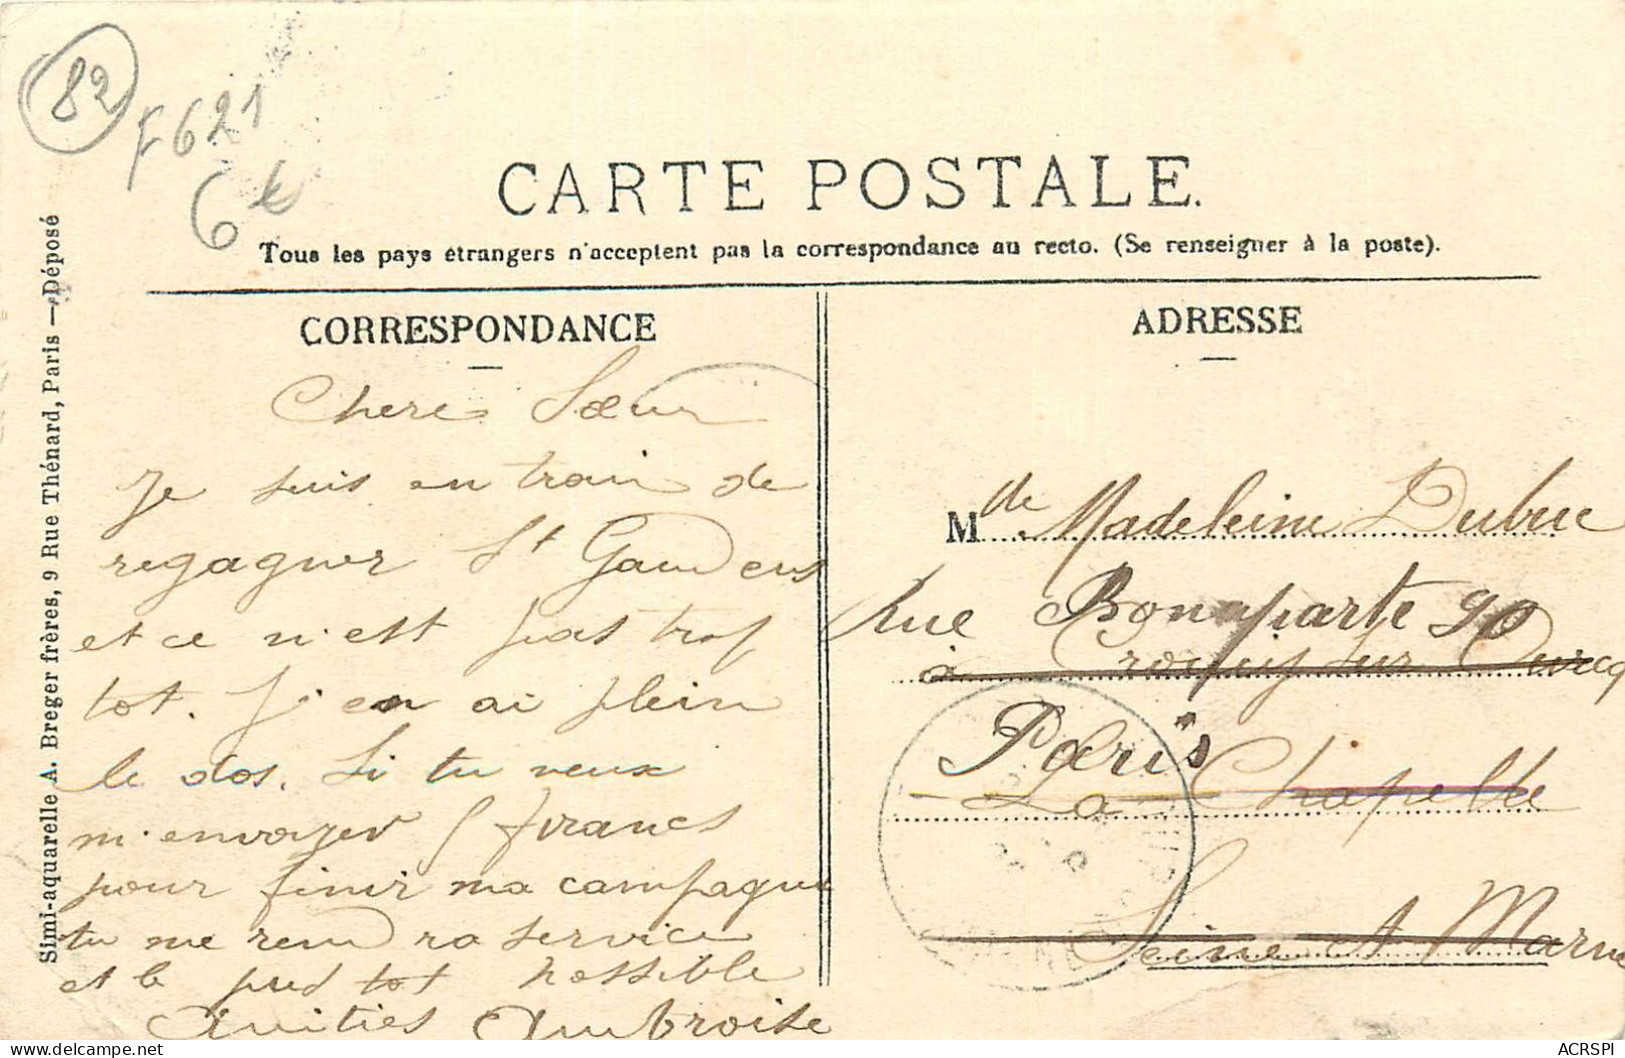 82
F621
6€
CARTE POSTALE.
Tous les pays étrangers n'acceptent pas la correspondance au recto. (Se renseigner à la poste).
Simi-aquarelle A. Breger frères, 9 Rue Thénard, Paris — Déposé
CORRESPONDANCE
Chere Sœur
Je suis en train de
regagner St Gaudens
et ce n'est pas trop
tot. J'en ai plein
le dos. Si tu veux
m'envoyer 5 francs
pour finir ma campagne
tu me rendra service
et le plus tot possible
Amities Ambroise
ADRESSE
Mde Madeleine Dubuc
Rue Bonaparte 90
à Crouy sur Ourcq
Paris
La Chapelle
Seine et Marne
ACRSPI